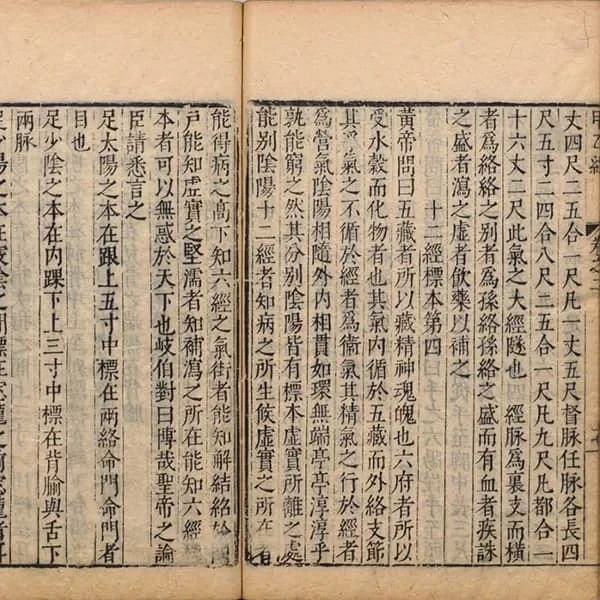 甲乙經 卷之二
丈四尺二五合一尺凡一丈五尺督脉任脉各長四
尺五寸二四合八尺二五合一尺凡九尺凡都合一
十六丈二尺此氣之大經隧也 經脉爲裏支而橫
者爲絡絡之别者爲孫絡孫絡之盛而有血者疾誅
之盛者瀉之虛者飲藥以補之
十二經標本第四
黄帝問曰五藏者所以藏精神魂魄也六府者所以
受水穀而化物者也其氣内循於五藏而外絡支節
其浮氣之不循於經者爲衛氣其精氣之行於經者
爲營氣陰陽相隨外内相貫如環無端亭亭淳淳乎
孰能窮之然其分别陰陽皆有標本虛實所離之處
能别陰陽十二經者知病之所生候虛實之所在
能得病之高下知六經之氣街者能知解結紹於
戸能知虛實之堅濡者知補瀉之所在能知六經
本者可以無惑於天下也岐伯對曰博哉聖帝之論
臣請悉言之
足太陽之本在跟上五寸中標在兩絡命門命門者
目也
足少陰之本在内踝下上三寸中標在背腧與舌下
兩脉
足少陽之本在竅陰之間標在窓籠之前窓籠者耳